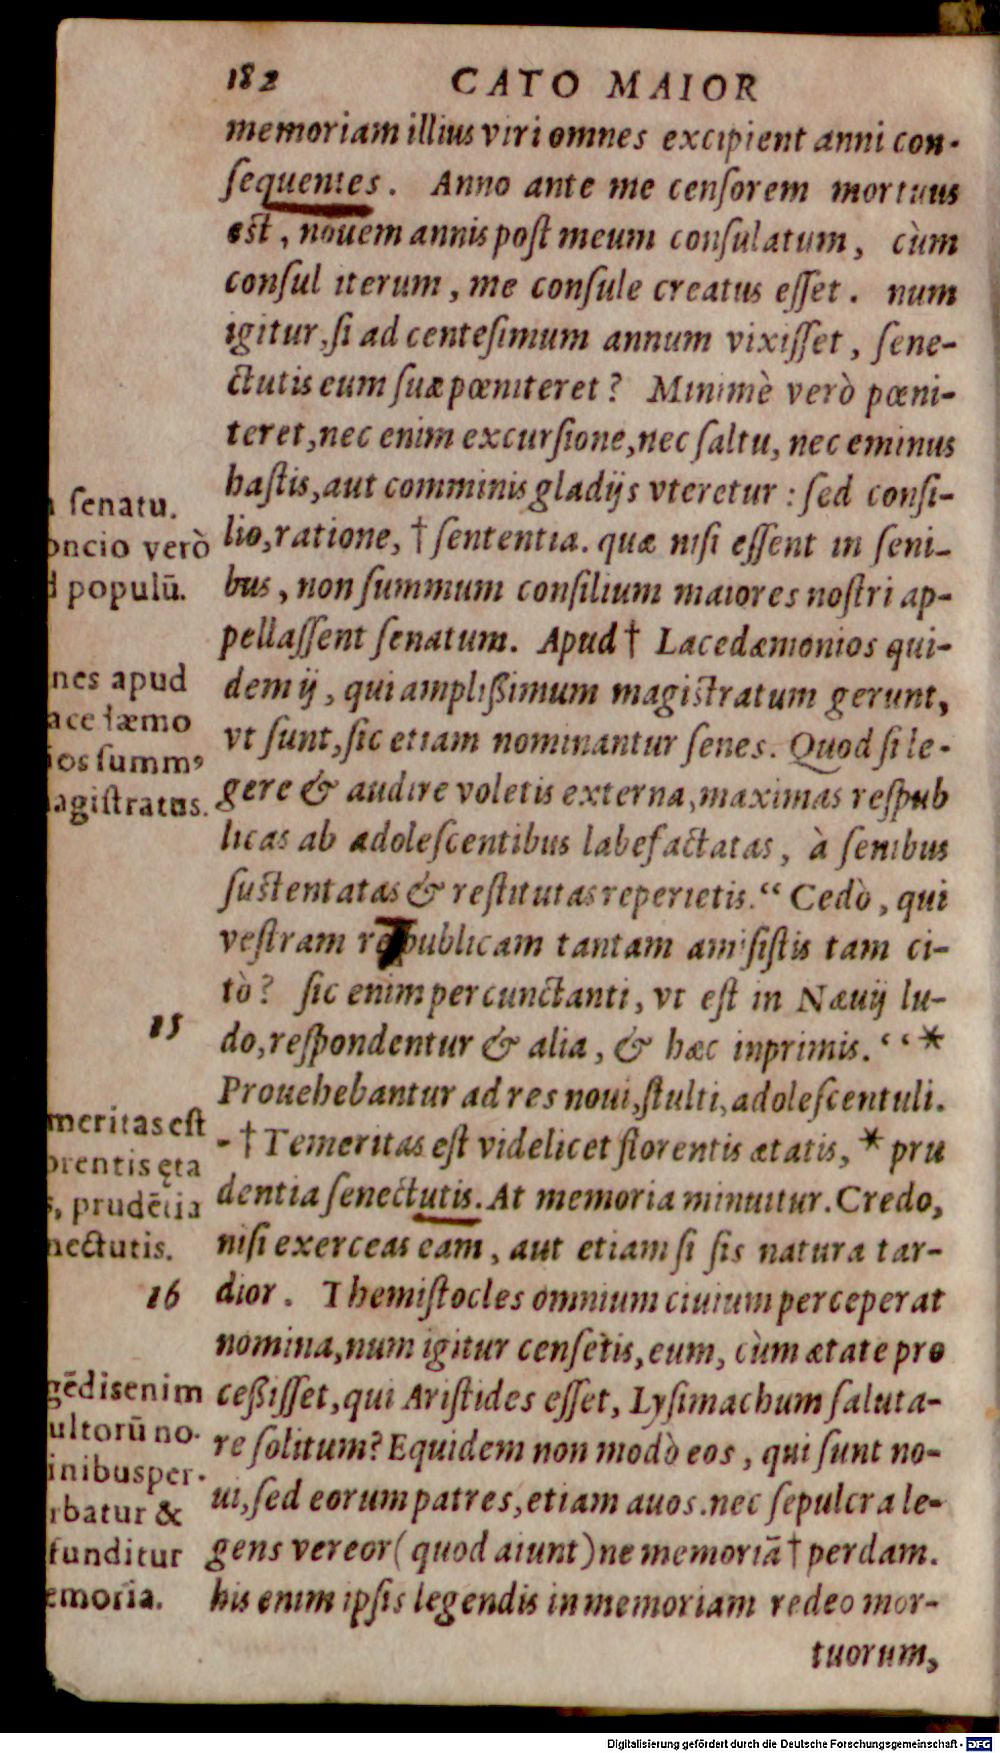 182 CATO MAIOR
memoriam illius viri omnes excipient anni con-
ſequentes. Anno ante me cenſorem mortuus
eſt, nouem annis poſt meum conſulatum, cùm
conſul iterum, me conſule creatus eſſet. num
igitur, ſi ad centeſimum annum vixiſſet, ſene-
ctutis eum ſuæ pœniteret? Minimè verò pœni-
teret, nec enim excurſione, nec ſaltu, nec eminus
haſtis, aut comminis gladijs vteretur: ſed conſi-
lio, ratione, † ſententia. quæ niſi eſſent in ſeni-
bus, non ſummum conſilium maiores noſtri ap-
pellaſſent ſenatum. Apud † Lacedæmonios qui-
dem ij, qui ampliſsimum magiſtratum gerunt,
vt ſunt, ſic etiam nominantur ſenes. Quod ſi le-
gere & audire voletis externa, maximas reſpub
licas ab adoleſcentibus labefactatas, à ſenibus
ſuſtentatas & reſtitutas reperietis.“ Cedò, qui
veſtram rempublicam tantam amiſiſtis tam ci-
tò? ſic enim percunctanti, vt eſt in Næuij lu-
do, reſpondentur & alia, & hæc inprimis.‘‘*
Prouehebantur ad res noui, ſtulti, adoleſcentuli.
-†Temeritas eſt videlicet florentis ætatis, * pru
dentia ſenectutis. At memoria minuitur. Credo,
niſi exerceas eam, aut etiam ſi ſis natura tar-
dior. Themiſtocles omnium ciuium perceperat
nomina, num igitur cenſetis, eum, cùm ætate pro
ceſsiſſet, qui Ariſtides eſſet, Lyſimachum ſaluta-
re ſolitum? Equidem non modò eos, qui ſunt no-
ui, ſed eorum patres, etiam auos. nec ſepulcra le-
gens vereor (quod aiunt) ne memoriã † perdam.
his enim ipſis legendis in memoriam redeo mor-
tuorum,
ſenatu.
oncio verò
d populū.
nes apud
ace dæmo
ios ſummꝰ
agiſtratus.
15
meritas eſt
orentis ęta
s, prudētia
nectutis.
16
gēdis enim
ultorū no-
inibus per-
rbatur &
funditur
emoria.
Digitalisierung gefördert durch die Deutsche Forschungsgemeinschaft - DFG